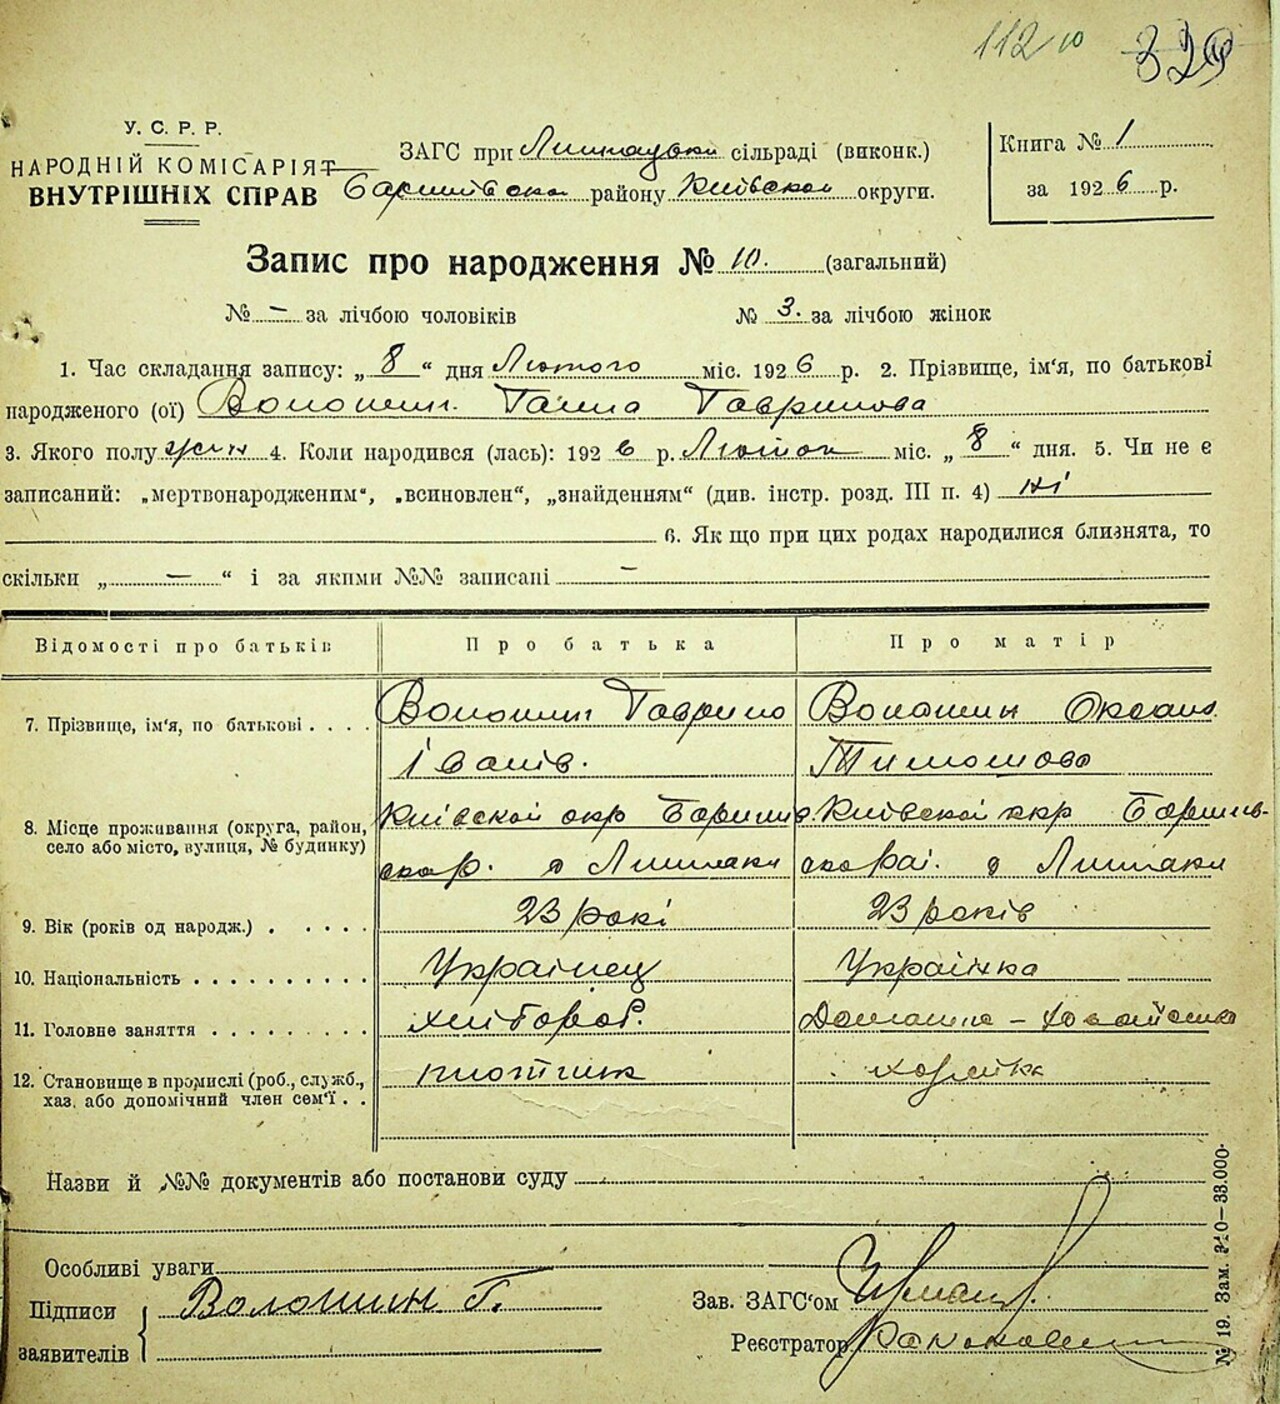 112 10 329
У. С. Р. Р.
НАРОДНІЙ КОМІСАРІЯТ
ВНУТРІШНІХ СПРАВ
ЗАГС при сільраді (виконк.)
Баришівско району Київской округи.
Книга № 1
за 1926 р.
Запис про народження № 10. (загальний)
№ – за лічбою чоловіків № 3. за лічбою жінок
1. Час складання запису: „ 8 “ дня Лютого міс. 1926 р. 2. Прізвище, ім'я, по батькові
народженого (ої) Волошин Ганна Гаврилова
3. Якого полу жін 4. Коли народився (лась): 1926 р. міс. „ 8 “ дня. 5. Чи не є
записаний: „мертвонародженим“, „всиновлен“, „знайденням“ (див. інстр. розд. III п. 4) ні
6. Як що при цих родах народилися близнята, то
скільки „ – “ і за якими №№ записані –
Відомості про батьків Про батька Про матір
7. Прізвище, ім'я, по батькові . . . . Волошин Гаврило Волошин Оксана
Іванів. Тимошова
8. Місце проживання (округа, район, Київской окр Київской окр
село або місто, вулиця, № будинку) Лишняки Лишняки
9. Вік (років од народж.) . . . . . 23 рокі 23 років
10. Національність . . . . . . . . . . Українец Українка
11. Головне заняття . . . . . . . . . хлібороб. Домашнє – хозайство
12. Становище в промислі (роб., служб., плотник хозяйка
хаз. або допомічний член сем'ї . .
Назви й №№ документів або постанови суду
Особливі уваги
Підписи Волошин Г.
заявителів
Зав. ЗАГС'ом
Реєстратор
№ 19. Зам. 310—33.000.